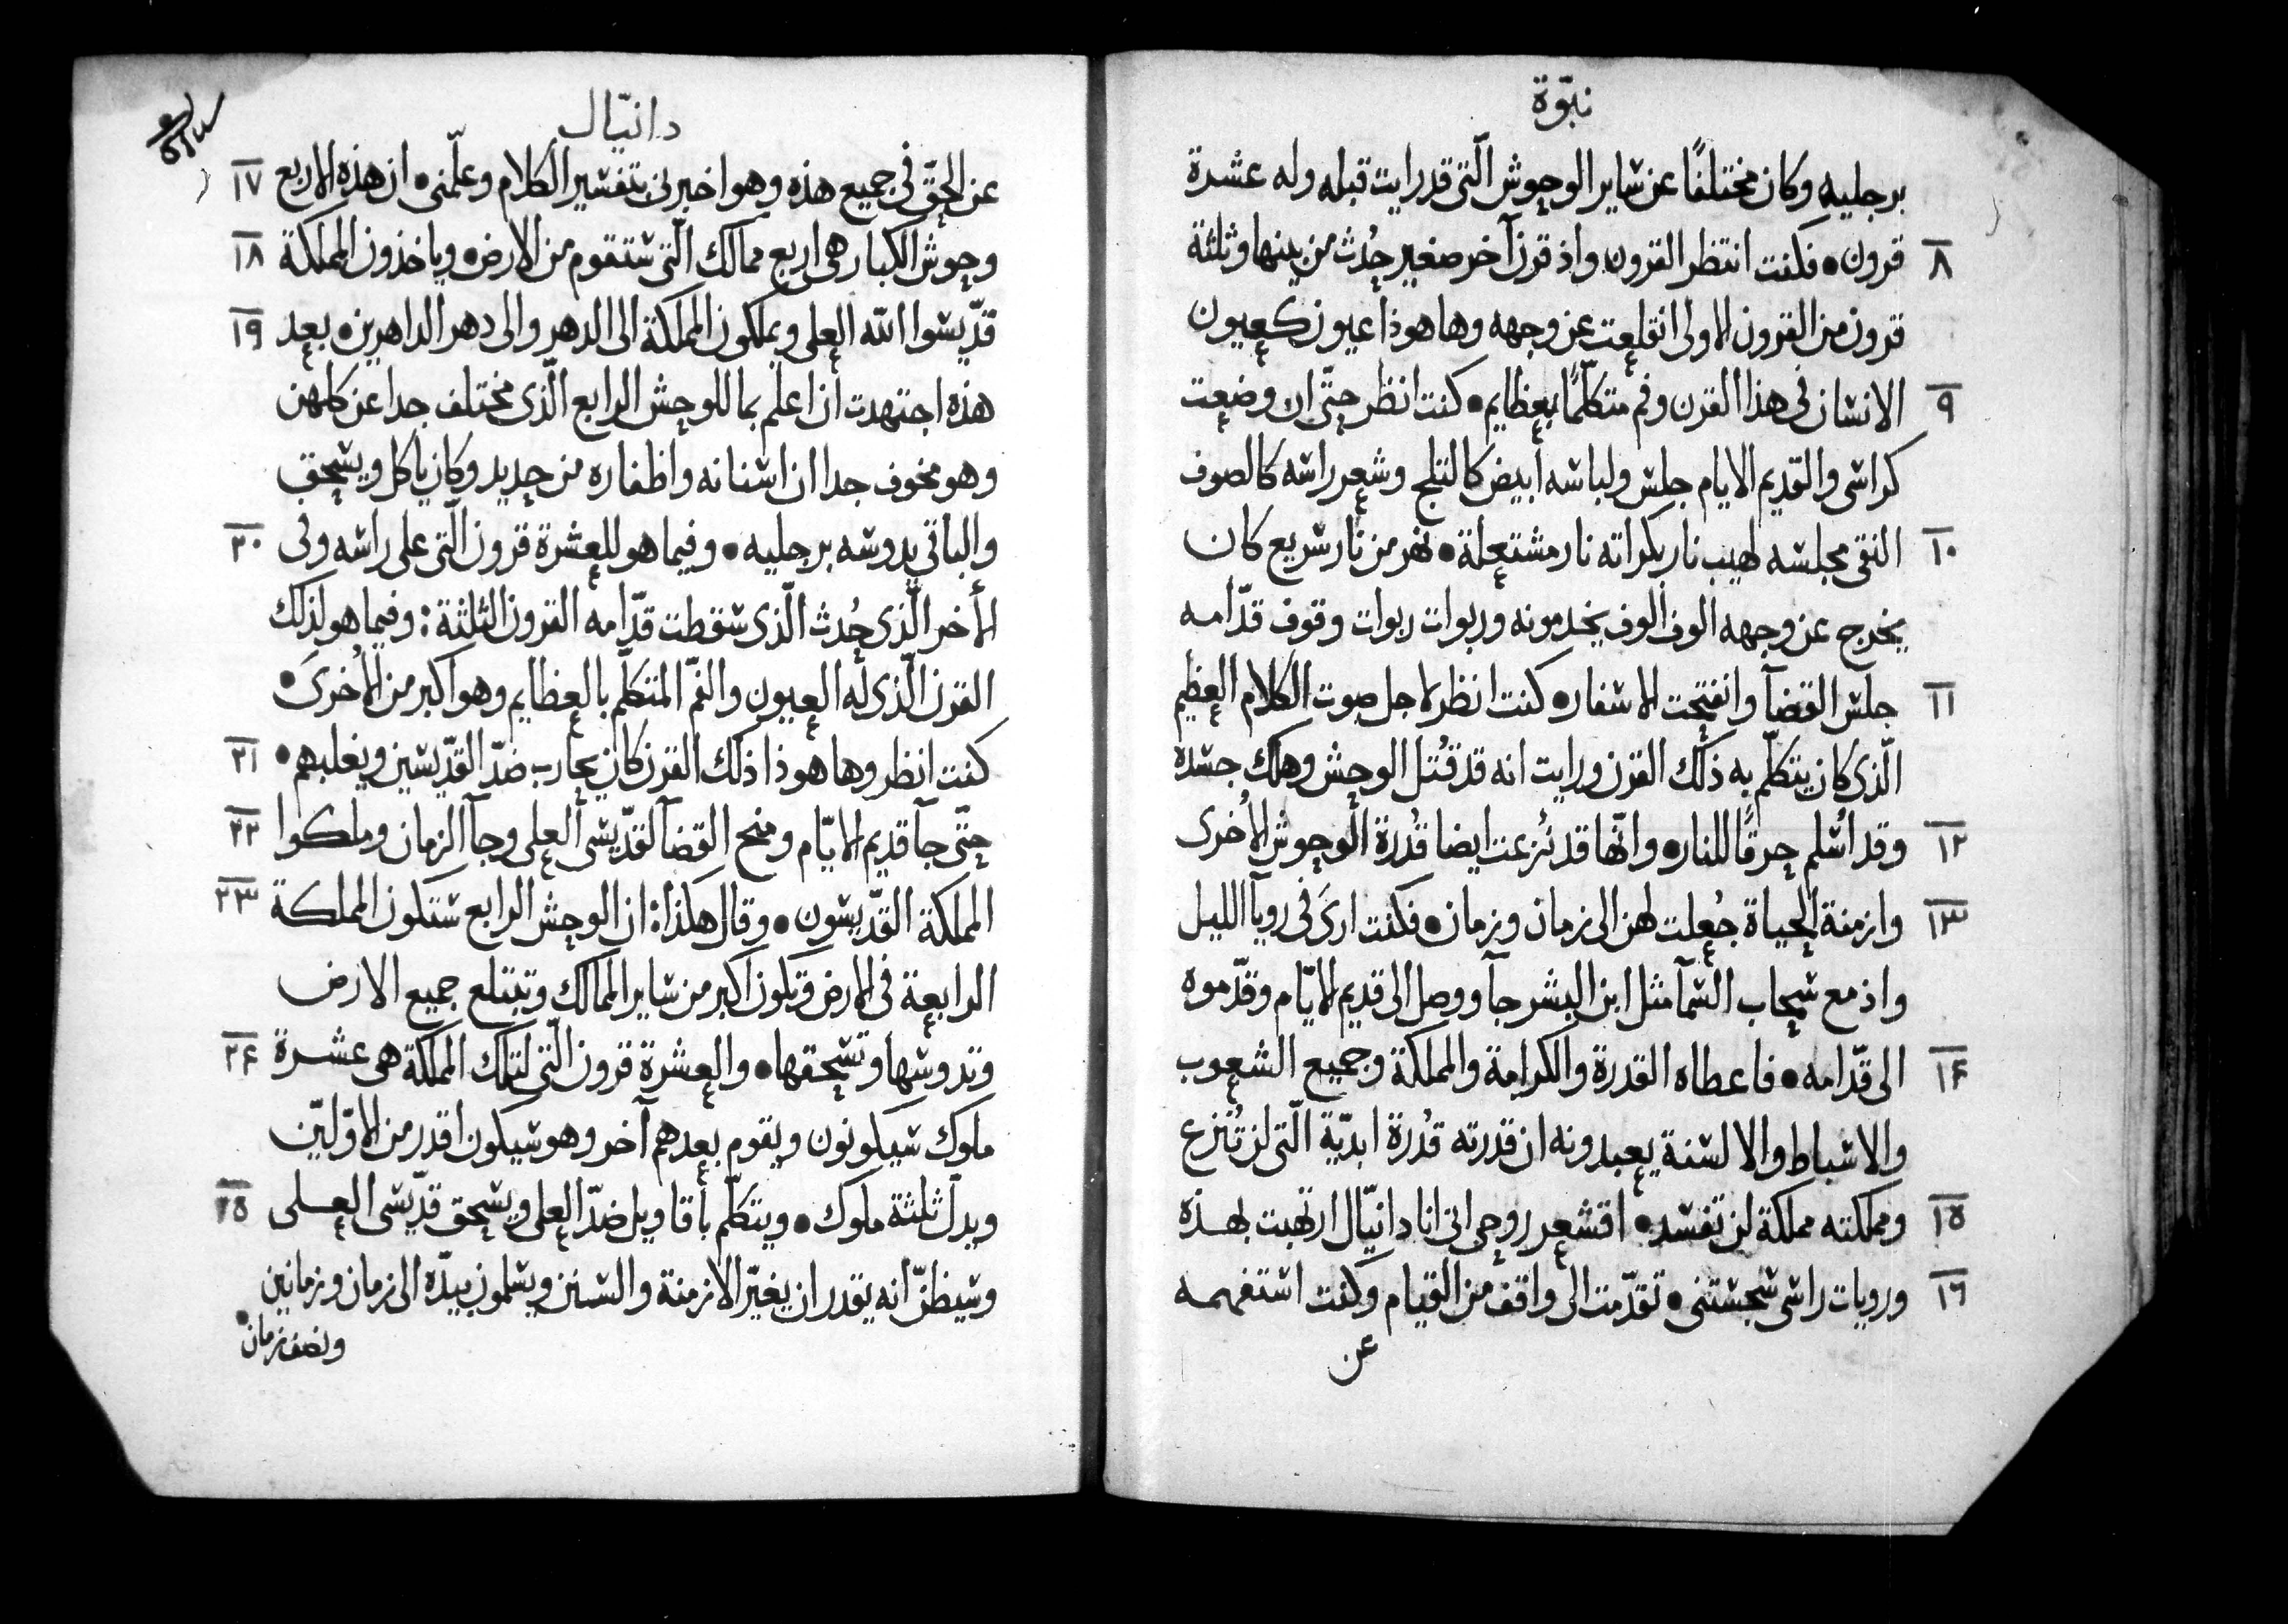 نبوّة
برجليه وكان مختلفًا عن ساير الوحوش الّتى قد رايت قبله وله عشرة
٨ قرون • فكنت انتظر القرون واذ قرن آخر صغير حُدث من بينها وثلثة
قرون من القرون الاولى انقلعت عن وجهه وها هوذا عيون كعيون
٩ الانسان فى هذا القرن وفم متكلّمًا بعظايم • كنت انظر حتّى ان وضعت
كراسى والقديم الايام جلس ولباسه ابيض كالثلج وشعر راسه كالصوف
١٠ النقى مجلسه لهيب نار بكراته نار مشتعلة • نهر من نار سريع كان
يخرج عن وجهه الوف الوف يخدمونه وربوات ربوات وقوف قدّامه
١١ جلس القضآ وانفتحت الاسفار • كنت انظر لاجل صوت الكلام العظيم
الّذى كان يتكلّم به ذلك القرن ورايت انه قد قُتل الوحش وهلك جسده
١٢ وقد اُسلم حرقًا للنار • وانّها قد نُزعت ايضا قُدرة الوحوش الاُخرى
١٣ وازمنة الحياة جُعلت لهن الى زمان وزمان • فكنت ارىَ فى رويآ الليل
واذ مع سحاب السّمآ مثل ابن البشر جآ ووصل الى قديم الايّام وقدّموه
١۴ الى قدّامه • فاعطاه القدرة والكرامة والمملكة وجميع الشعوب
والاسباط والالسنة يعبدونه ان قدرته قُدرة ابديّة الّتى لن تُنزع
١٥ ومملكته مملكة لن تفسد • اقشعر روحى انى انا دانيّال ارتهبت بهذه
١٦ ورويات راسى سجستنى • تقدّمت الى واقف من القيام وكنت استفهمه
عن
دانيّال
عن الحقّ فى جميع هذه وهو اخبرنى بتفسير الكلام وعلّمنى • ان هذه الاربع ١٧
وحوش الكبار هى اربع ممالك الّتى ستقوم من الارض • وياخذون المملكة ١٨
قدّيسوا الله العلى ويملكون المملكة الى الدهر والى دهر الداهرين • بعد ١٩
هذه اجتهدت ان اعلم بما للوحش الرابع الّذى مختلف جدا عن كلهن
وهو مخوف جدا ان اسنانه واظفاره من حديد وكان ياكل ويسحق
والباقي يدوسه برجليه • وفيما هو للعشرة قرون الّتى على راسه وفى ٢٠
الأخر الّذى حُدث الّذى سقطت قدّامه القرون الثلثة : وفيما هو لذلك
القرن الّذى له العيون والفمّ المتكلّم بالعظايم وهو اكبر من الاُخرىَ •
كنت انظر وها هوذا ذلك القرن كان يحارب ضدّ القدّيسين ويغلبهم • ٢١
حتّى جآ قديم الايّام ومنح القضآ لقدّيسى العلى وجآ الزمان وملكوا ٢٢
المملكة القدّيسون • وقال هكذا : ان الوحش الرابع ستكون المملكة ٢٣
الرابعة فى الارض وتكون اكبر من ساير الممالك وتبتلع جميع الارض
وتدوسها وتسحقها • والعشرة قرون الّتى لتلك المملكة هى عشرة ٢۴
ملوك سيكونون ويقوم بعدهم آخر وهو سيكون اقدر من الاوّليّن
ويدل ثلثة ملوك • ويتكلّم بأقاويل ضدّ العلى ويسحق قدّيسى العلى ٢٥
وسيظنّ انه يقدر ان يغيّر الازمنة والسنن ويسلمون بيدّه الى زمان وزمانين
ونصف زمان •